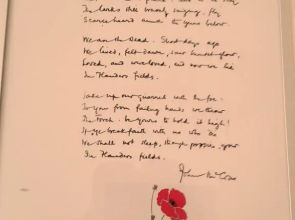 The larks, still bravely singing, fly
Scarce heard amid the guns below.
We are the Dead. Short days ago
We lived, felt dawn, saw sunset glow,
Loved, and were loved, and now we lie
In Flanders fields.
Take up our quarrel with the foe:
To you from failing hands, we throw
The torch - be yours to hold it high!
If ye break faith with us who die
We shall not sleep, though poppies grow
In Flanders fields.
John McCrae